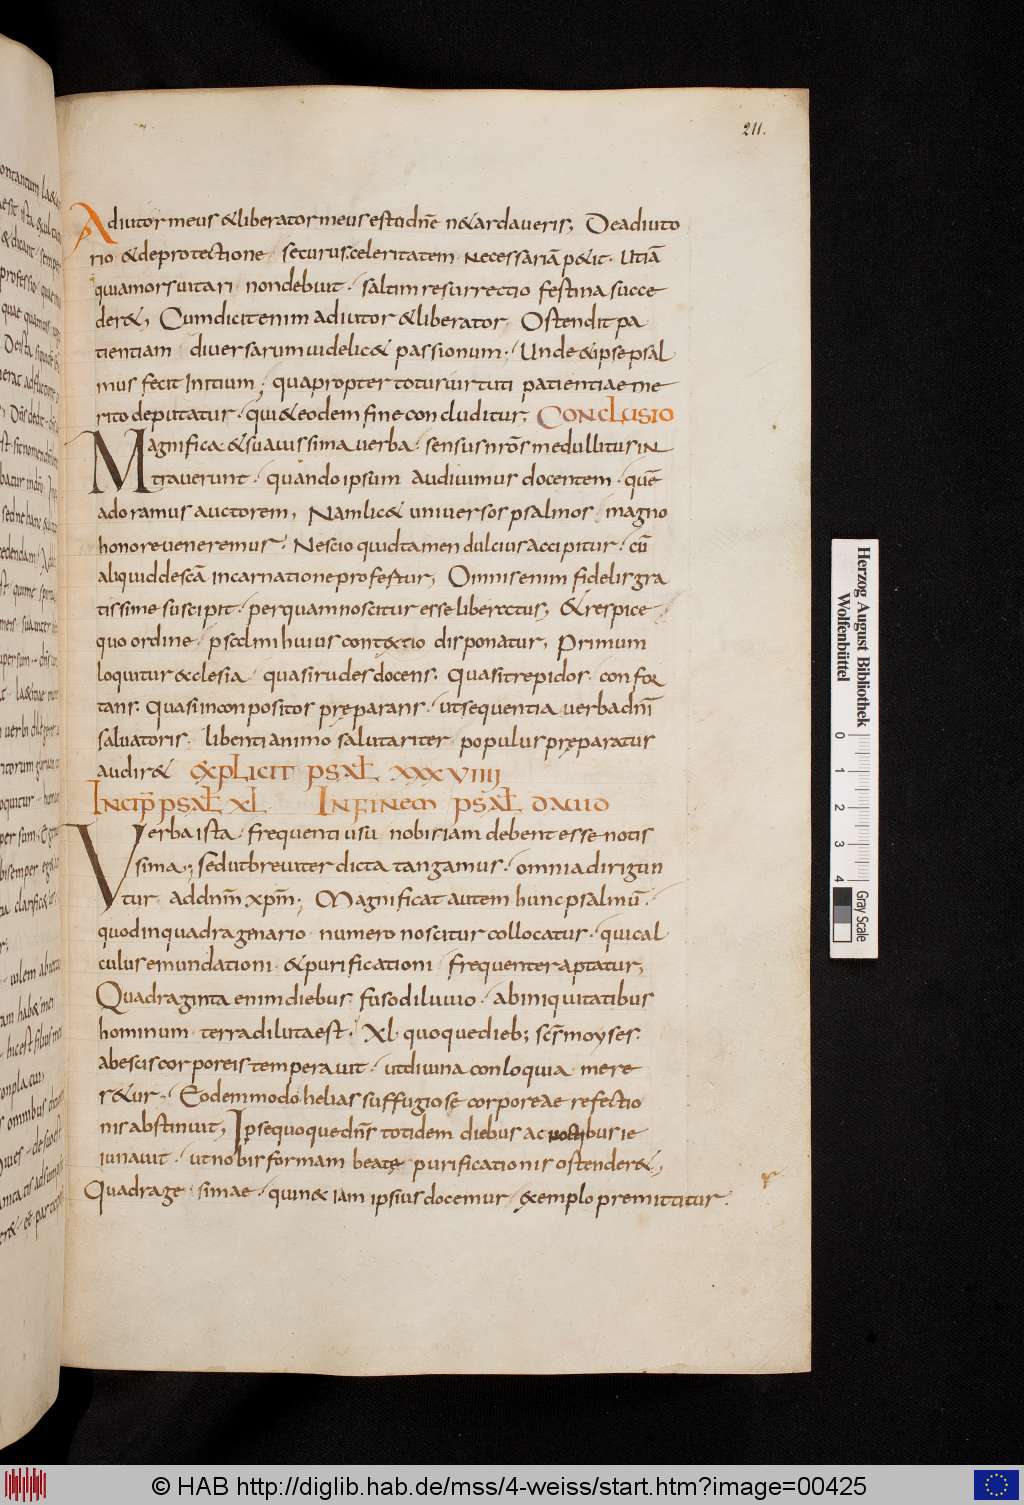 211.
Adiutor meus & liberator meus esto dn̄e n&ardaveris; De adiuto
rio & de protectione · securus. celeritatem necessariā p&it · Utiā
quia morsvitari non debuit · saltim resurrectio festina succe
der&; Cum dicit enim adiutor & liberator · Ostendit pa
tientiam diversarum videlic& passionum · Unde & ipse psal
mus fecit Initium; quapropter totus virtuti patientiae me
rito deputatur · qui & eodem fine concluditur; Conclusio
Magnifica & suavissima verba · sensus nr̄os medullitus in
traverunt · quando ipsum audivimus docentem · quē
adoramus auctorem; Nam lic& universos psalmos magno
honore veneremus · Nescio quid tamen dulcius accipitur · cū
aliquid de scā incarnatione profertur; Omnis enim fidelis gra
tissime suscipit · per quam noscitur esse liberatus; & respice
quo ordine psalmi huius cont&tio disponatur; Primum
loquitur &clesia quasi rudes docens · Quasi trepidos confor
tans · Quasi inconpositos pręparans · ut sequentia verba dn̄i
salvatoris · libenti animo salutariter populus pręparatus
audir& explicit psal xxxviiii
Incip psal xl In finem psal david
Verba ista frequenti usu nobis iam debent esse notis
sima; sed ut breviter dicta tangamus · omnia dirigun
tur ad dn̄m xp̄m; Magnificat autem hunc psalmū ·
quod in quadragenario numero noscitur collocatus · qui cal
culus emundationi · & purificationi frequenter aptatur;
Quadraginta enim diebus fuso diluvio · ab iniquitatibus
hominum terra diluta est · Xl · quoque dieb; scs̄ moyses ·
ab escis corporeis temperavit · ut divina conloquia mere
r&ur · Eodem modo helias suffugio se corporeae refectio
nis abstinuit; Ipse quoque dn̄s totidem diebus ac noctibus ie
iunavit · ut nobis formam beatę purificationis ostender&;
Quadrage simae · quin & iam ipsius docemur &emplo premittitur ·
Herzog August Bibliothek
Wolfenbüttel
0 1 2 3 4
Gray Scale
© HAB http://diglib.hab.de/mss/4-weiss/start.htm?image=00425